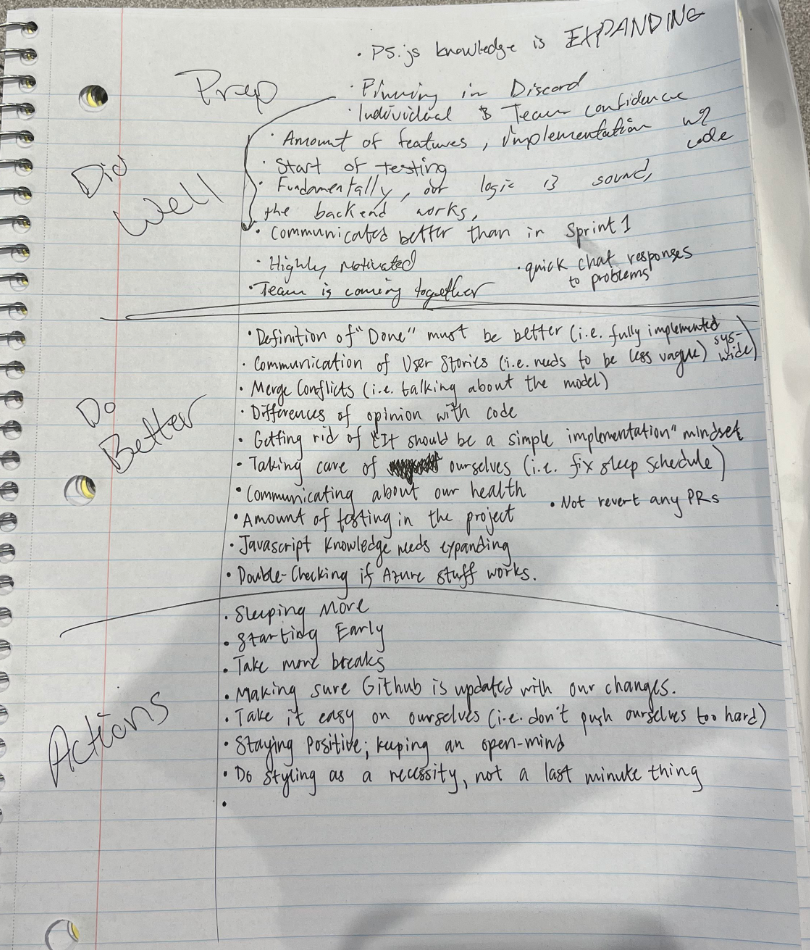 • P5.js knowledge is EXPANDING
Prep
• Pinning in Discord
• Individual & Team confidence
• Amount of features, implementation w/ code
• Start of testing
Did Well
• Fundamentally, our logic is sound,
the backend works,
• Communicated better than in Sprint 1
• Highly Motivated
• quick chat responses
to problems
• Team is coming together
Do Better
• Definition of "Done" must be better (i.e. fully implemented sys-wide)
• Communication of User Stories (i.e. needs to be less vague)
• Merge Conflicts (i.e. talking about the model)
• Differences of opinion with code
• Getting rid of "It should be a simple implementation" mindset
• Taking care of ourselves (i.e. fix sleep schedule)
• Communicating about our health
• Not revert any PRs
• Amount of testing in the project
• Javascript Knowledge needs expanding
• Double-Checking if Azure stuff works.
Actions
• Sleeping More
• Starting Early
• Take more breaks
• Making sure Github is updated with our changes.
• Take it easy on ourselves (i.e. don't push ourselves too hard)
• Staying Positive; keeping an open-mind
• Do styling as a necessity, not a last minute thing
•